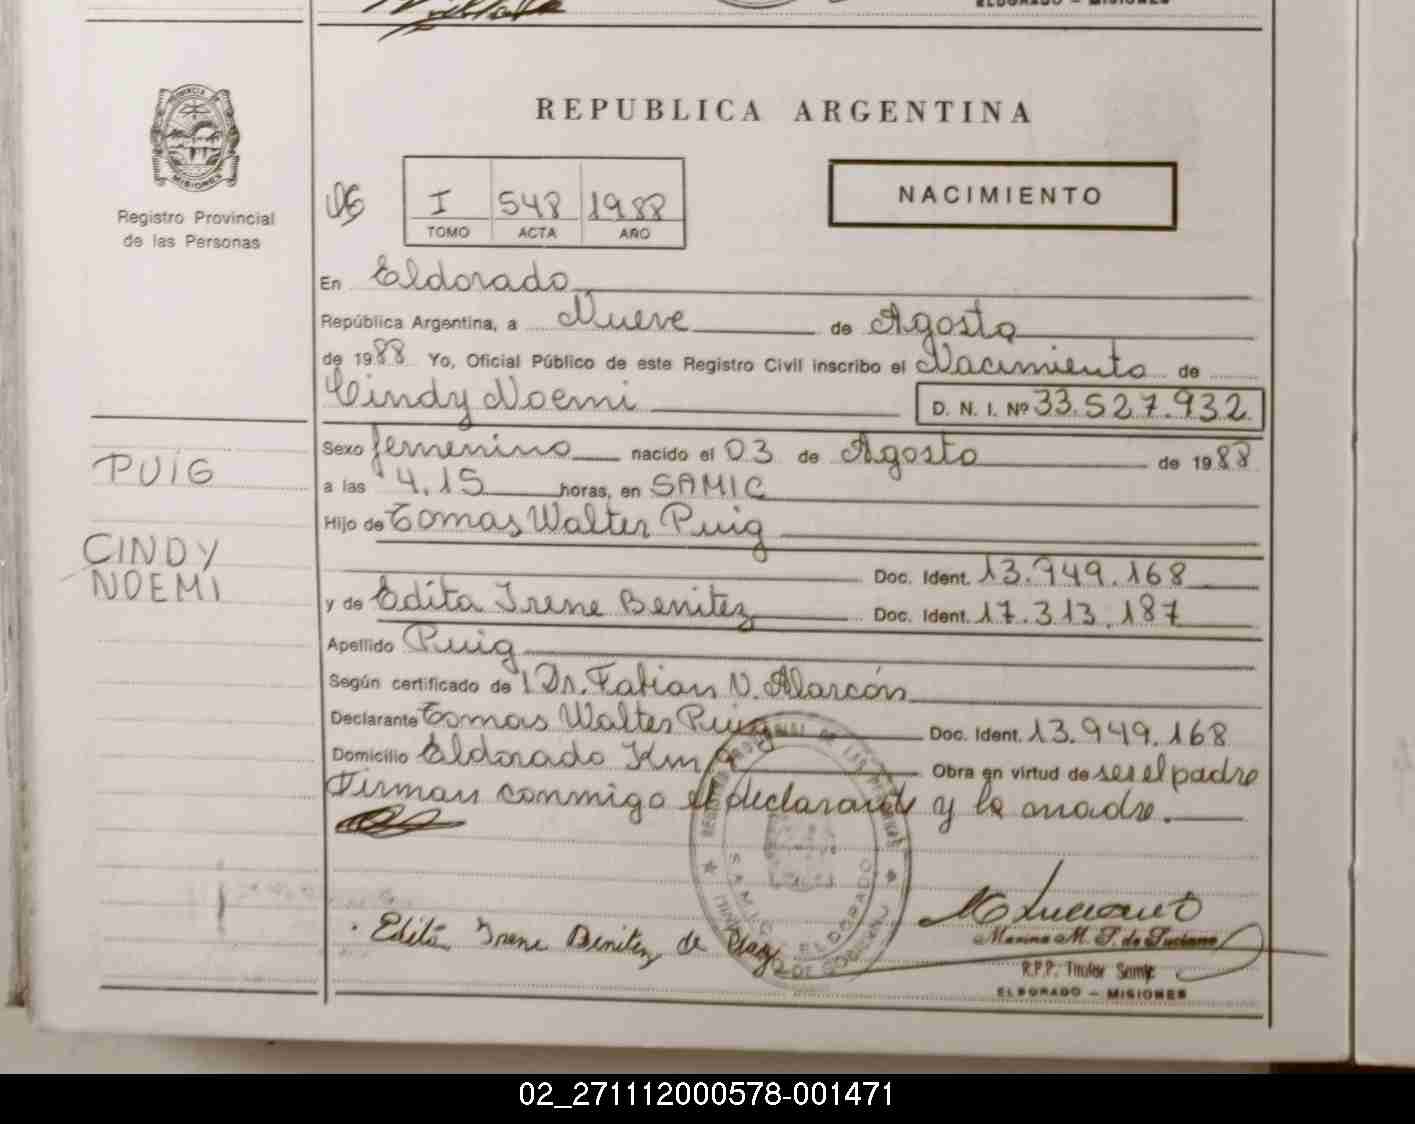 ELDORADO - MISIONES
REPUBLICA ARGENTINA
PROVINCIA
MISIONES
Registro Provincial
de las Personas
I 548 1988
TOMO ACTA AÑO
NACIMIENTO
En Eldorado
República Argentina, a Nueve de Agosto
de 1988 Yo, Oficial Público de este Registro Civil inscribo el Nacimiento de
Cindy Noemi D. N. I. Nº 33.527.932
Sexo femenino nacido el 03 de Agosto de 1988
a las 4.15 horas, en SAMIC
Hijo de Tomas Walter Puig
Doc. Ident. 13.949.168
y de Edita Irene Benitez Doc. Ident. 17.313.187
Apellido Puig
Según certificado de Dr. Fabian V. Alarcón
Declarante Tomas Walter Puig Doc. Ident. 13.949.168
Domicilio Eldorado Km 9 Obra en virtud de ser el padre
Firman conmigo el declarante y la madre.
PUIG
CINDY
NOEMI
REGISTRO PROVINCIAL DE LAS PERSONAS
SAMIC ELDORADO
DE GOBIERNO
Edita Irene Benitez de Puig
Marina M. T. de Luciano
R.P.P. Titular Samic
ELDORADO - MISIONES
02_271112000578-001471